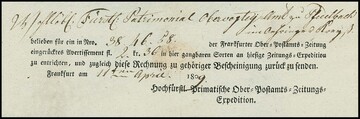 Patrimonial Obervogtey Amt zu
belieben für ein in Nro. 38. 46. 58. der Frankfurter Ober-Postamts-Zeitung
eingrücktes Avertissement fl. 2 kr. 36 in hier gangbaren Sorten an hiesige Zeitungs-Expedition
zu entrichten, und zugleich diese Rechnung zu gehöriger Bescheinigung zurück zu senden.
Frankfurt am 11ten April 1809.
Hochfürstl. Primatische Ober-Postamts-Zeitungs-
Expedition.